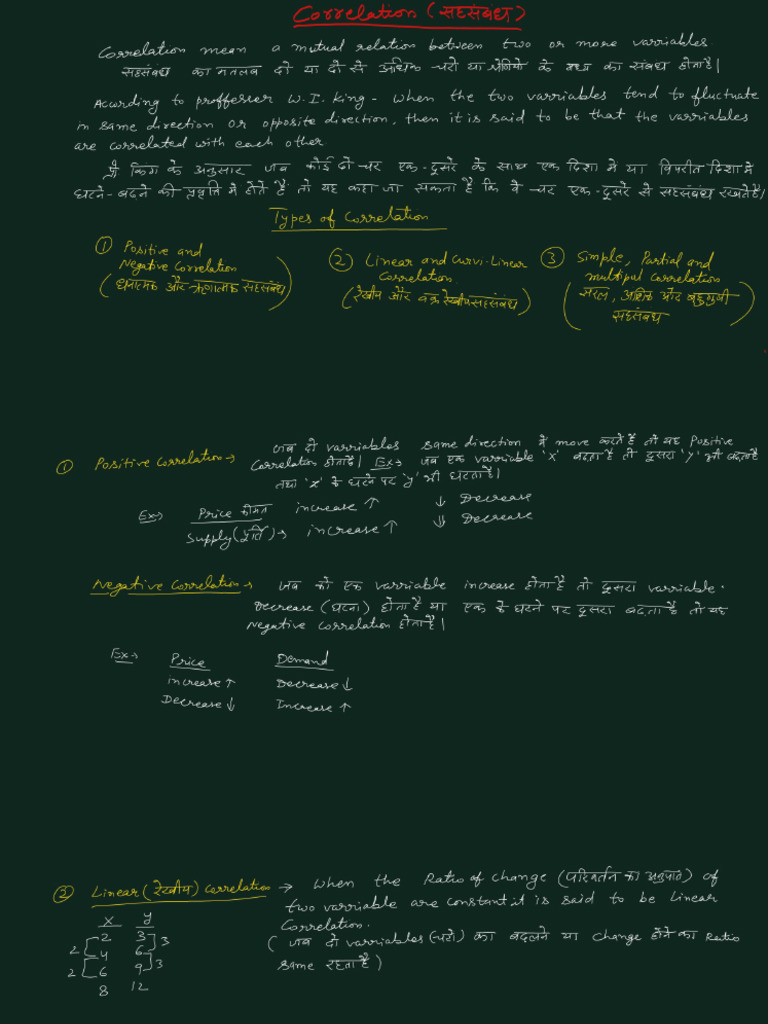 Correlation (सहसंबंध)
Correlation mean a mutual relation between two or more varriables.
सहसंबंध का मतलब दो या दो से अधिक चरो या श्रेणियो के मध्य का संबंध होता है।
According to proffersor W.I. King - when the two varriables tend to fluctuate
in same direction or opposite direction, then it is said to be that the varriables
are correlated with each other.
किंग के अनुसार जब कोई दो चर एक-दूसरे के साथ एक दिशा में या विपरीत दिशा में
घटने-बढने की प्रवृति मे होते है तो यह कहा जा सकता है कि वे चर एक-दूसरे से सहसंबंध रखते है।
Types of Correlation
① Positive and
Negative Correlation
(धनात्मक और ऋणात्मक सहसंबंध)
② Linear and Curvi-Linear
Correlation.
(रेखीय और वक्र रेखीय सहसंबंध)
③ Simple, Partial and
multipul correlation
(सरल, आंशिक और बहुगुणी
सहसंबंध)
① Positive Correlation → जब दो varriables same direction में move करते है तो यह Positive
Correlation होता है। Ex→ जब एक varriable 'x' बढता है तो दूसरा 'y' भी बढता है
तथा 'x' के घटने पर 'y' भी घटता है।
Ex→ Price कीमत increase ↑ ↓ Decrease
Supply (पूर्ति) → increase ↑ ↓ Decrease
Negative Correlation → जब को एक varriable increase होता है तो दूसरा varriable.
Decrease (घटना) होता है या एक के घटने पर दूसरा बढता है तो यह
Negative Correlation होता है।
Ex→ Price Demand
increase ↑ Decrease ↓
Decrease ↓ Increase ↑
② Linear (रेखीय) Correlation → When the Ratio of change (परिवर्तन का अनुपात) of
two varriable are constant it is said to be Linear
Correlation.
(जब दो varriables (चरो) का बदलने या change होने का Ratio
same रहता है)
x y
2 3
2 3
4 6
2 3
6 9
8 12